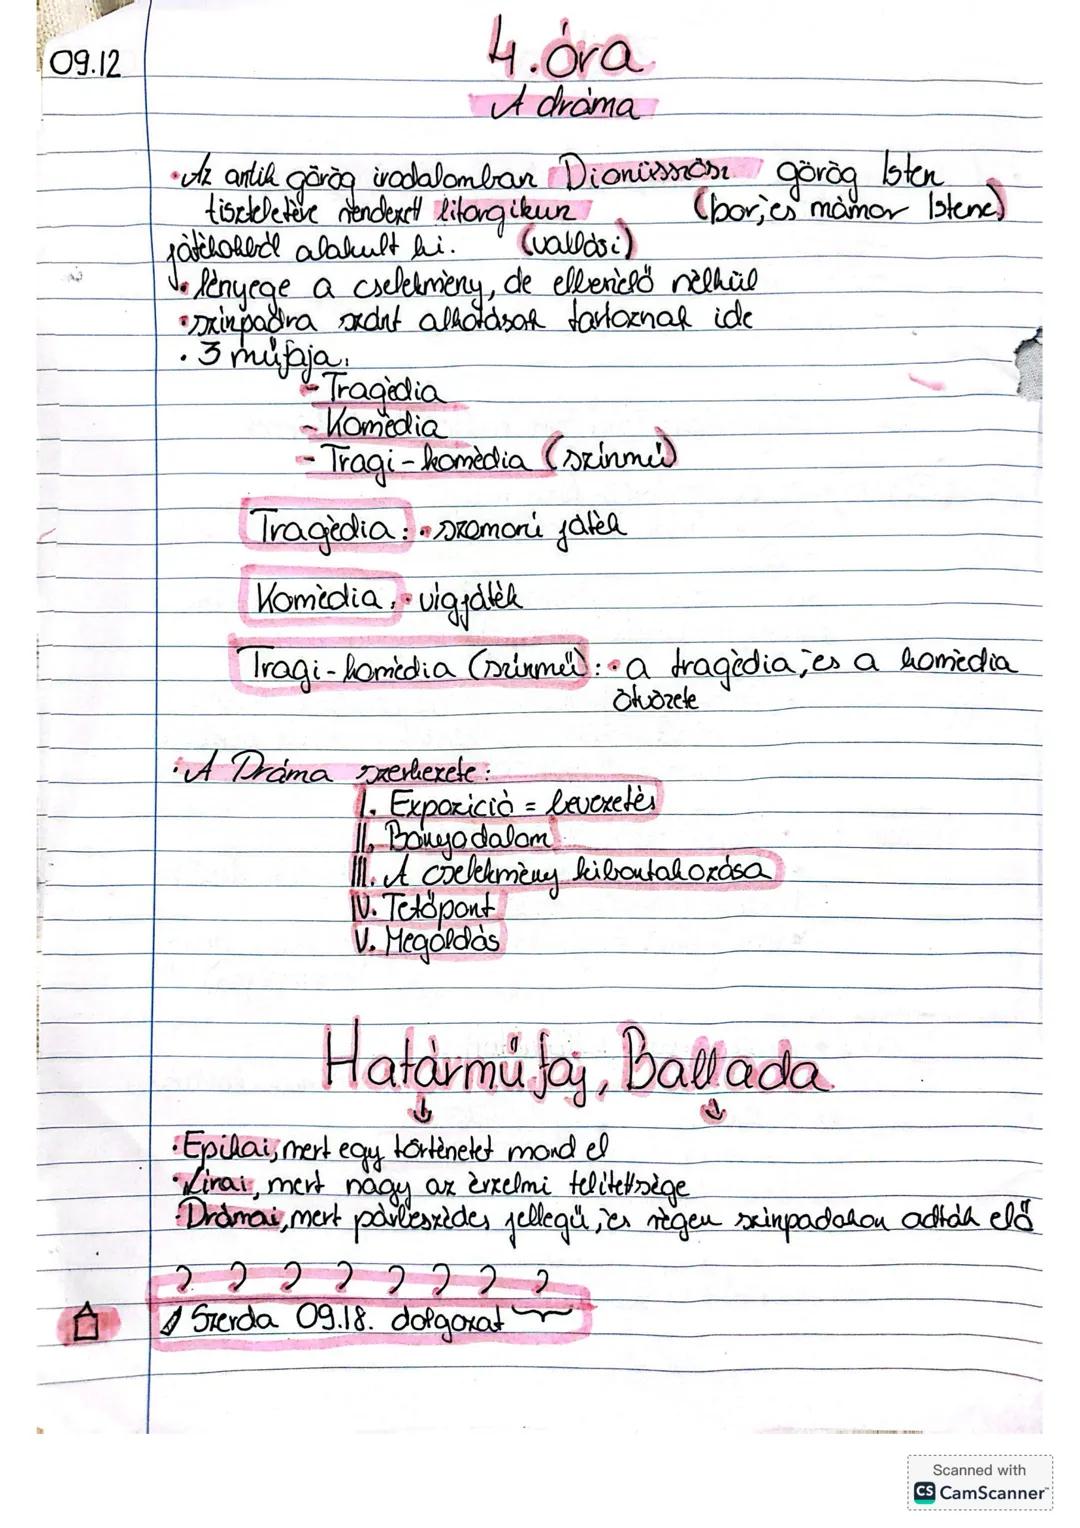 09.12
4. óra
A dráma
• Az antik görög irodalomban Dionüsszosz görög Isten
tiszteletére rendezett liturgikun (bor, és mámor Istene)
játékokból alakult ki. (vallási)
• lényege a cselekmény, de elbeszélő nélkül
• színpadra szánt alkotások tartoznak ide
• 3 műfaja:
- Tragèdia
- Komèdia
- Tragi-komèdia (színmű)
Tragèdia: • szomorú játèk
Komèdia: • vígjátèk
Tragi-komèdia (színmű): • a tragèdia, ès a komèdia
ötvözete
• A Dráma szerkezete:
I. Expozíciò = bevezetès
II. Bonyodalom
III. A cselekmèny kibontakozása
IV. Tetőpont
V. Megoldás
Határműfaj, Ballada
↓ ↓
• Epikai, mert egy törtènetet mond el
• Lírai, mert nagy az èrzelmi telítettsège
• Drámai, mert párbeszèdes jellegű, ès règen színpadokon adták elő
Szerda 09.18. dolgozat
Scanned with
CS CamScanner